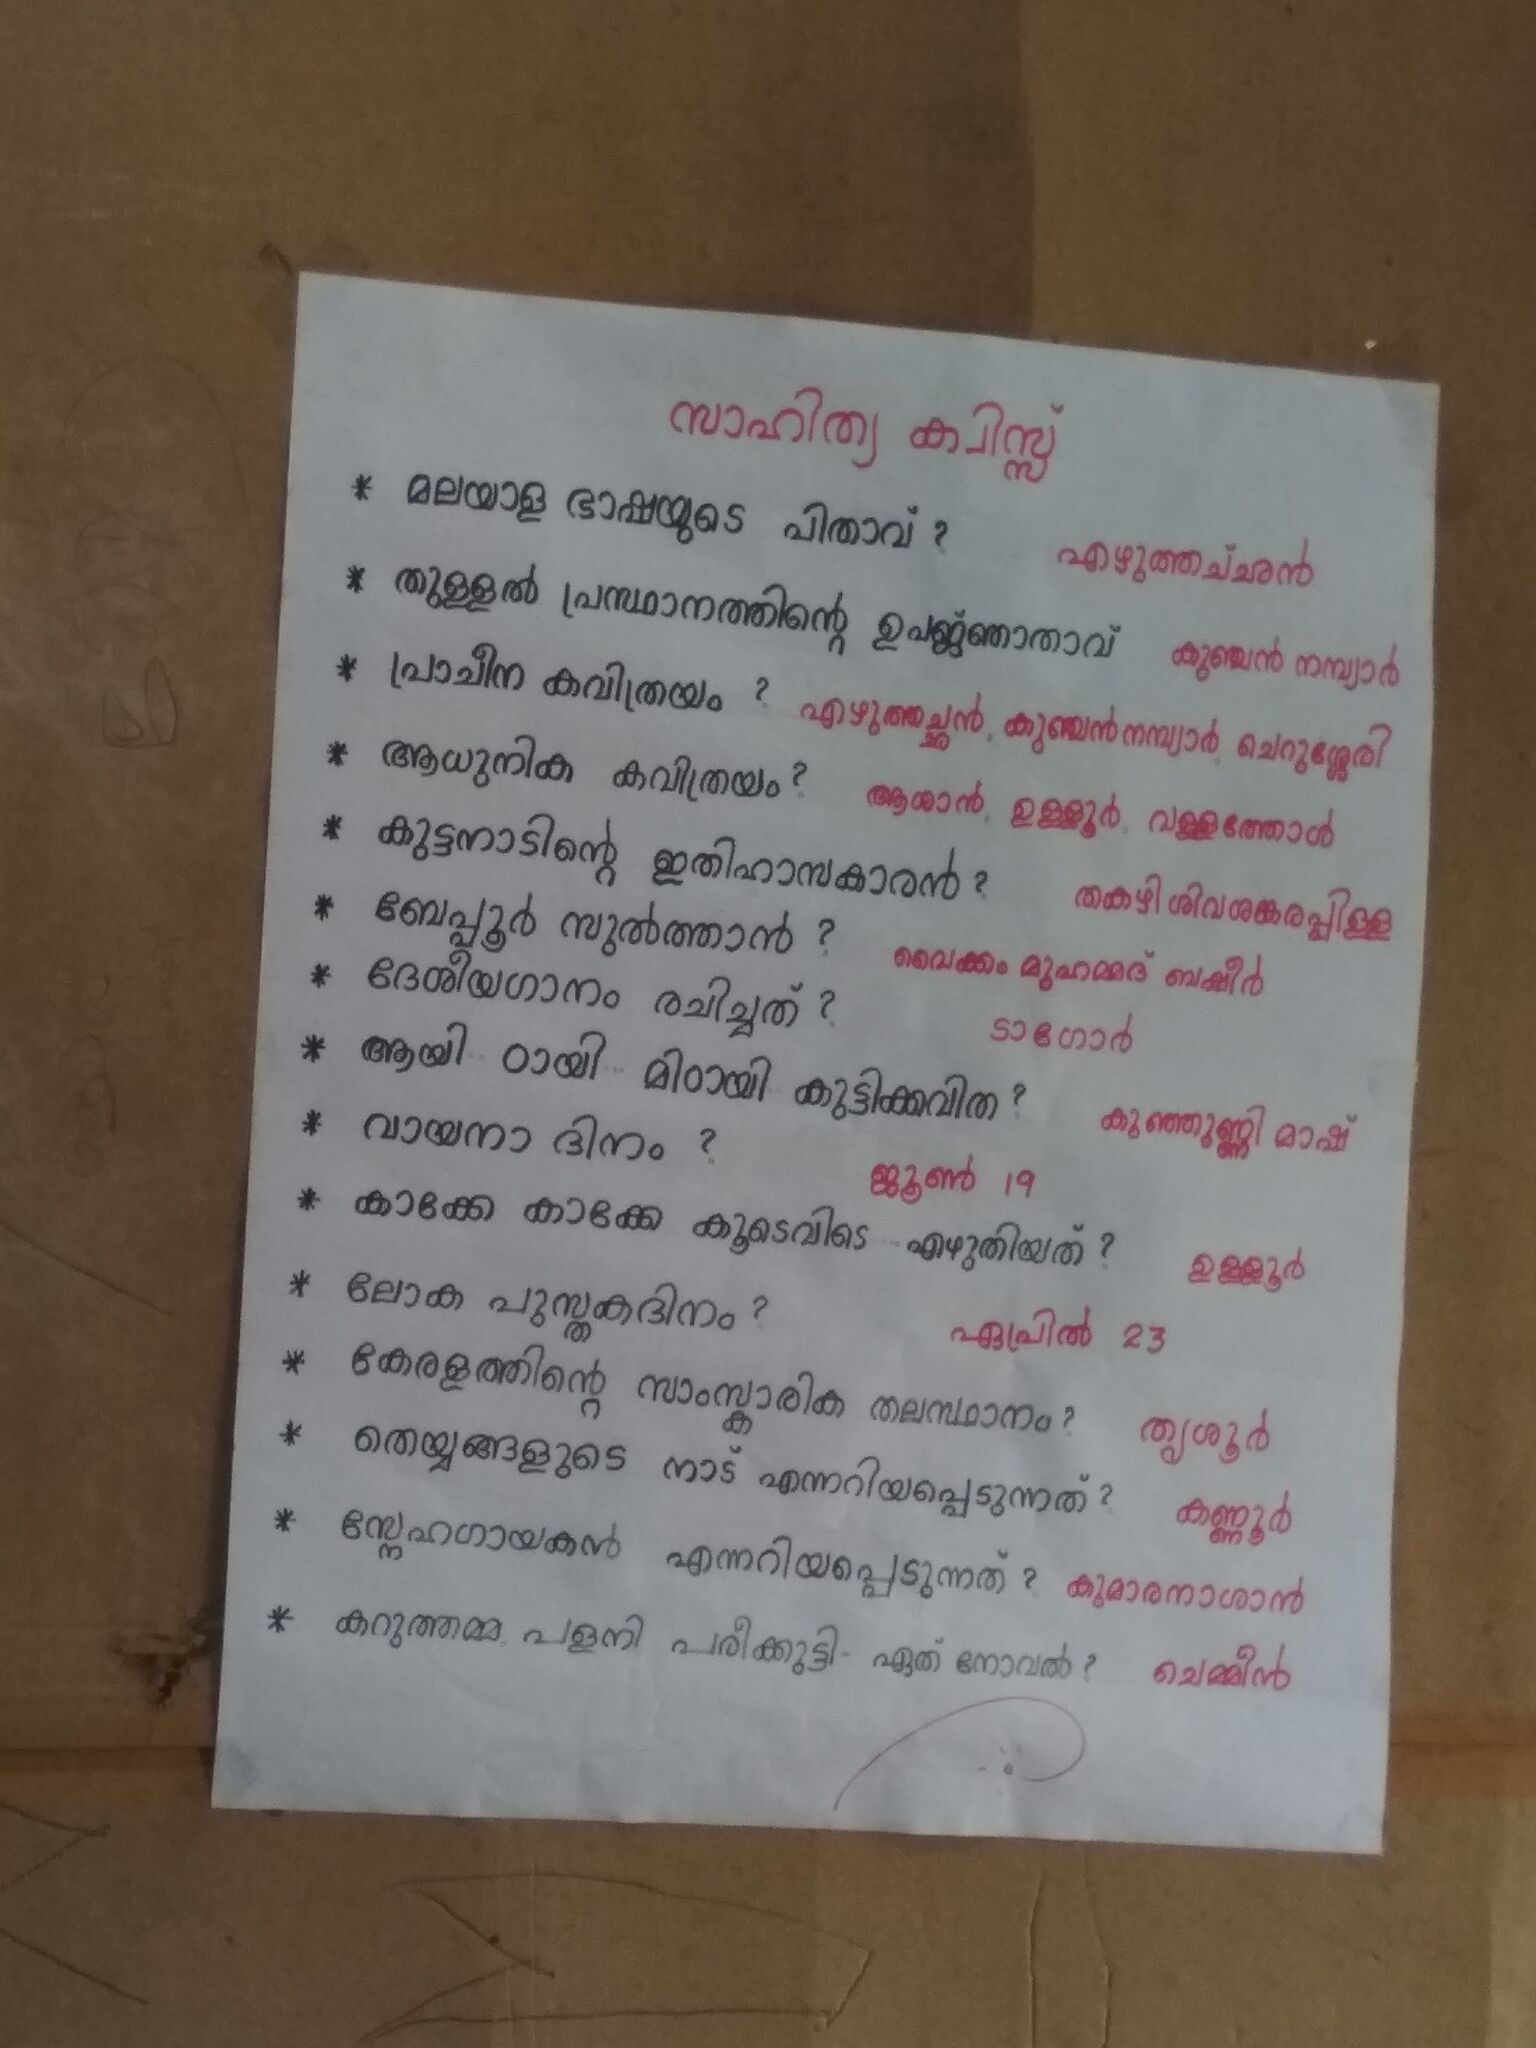 സാഹിത്യ ക്വിസ്സ്
* മലയാള ഭാഷയുടെ പിതാവ് ? എഴുത്തച്ഛൻ
* തുള്ളൽ പ്രസ്ഥാനത്തിന്റെ ഉപജ്ഞാതാവ് കുഞ്ചൻ നമ്പ്യാർ
* പ്രാചീന കവിത്രയം ? എഴുത്തച്ഛൻ, കുഞ്ചൻ നമ്പ്യാർ, ചെറുശ്ശേരി
* ആധുനിക കവിത്രയം ? ആശാൻ, ഉള്ളൂർ, വള്ളത്തോൾ
* കുട്ടനാടിന്റെ ഇതിഹാസകാരൻ ? തകഴി ശിവശങ്കരപ്പിള്ള
* ബേപ്പൂർ സുൽത്താൻ ? വൈക്കം മുഹമ്മദ് ബഷീർ
* ദേശീയഗാനം രചിച്ചത് ? ടാഗോർ
* ആയി .. ഠായി .. മിഠായി കുട്ടിക്കവിത ? കുഞ്ഞുണ്ണി മാഷ്
* വായനാ ദിനം ? ജൂൺ 19
* കാക്കേ കാക്കേ കൂടെവിടെ .. എഴുതിയത് ? ഉള്ളൂർ
* ലോക പുസ്തകദിനം ? ഏപ്രിൽ 23
* കേരളത്തിന്റെ സാംസ്കാരിക തലസ്ഥാനം ? തൃശൂർ
* തെയ്യങ്ങളുടെ നാട് എന്നറിയപ്പെടുന്നത് ? കണ്ണൂർ
* സ്നേഹഗായകൻ എന്നറിയപ്പെടുന്നത് ? കുമാരനാശാൻ
* കറുത്തമ്മ, പളനി പരീക്കുട്ടി - ഏത് നോവൽ ? ചെമ്മീൻ